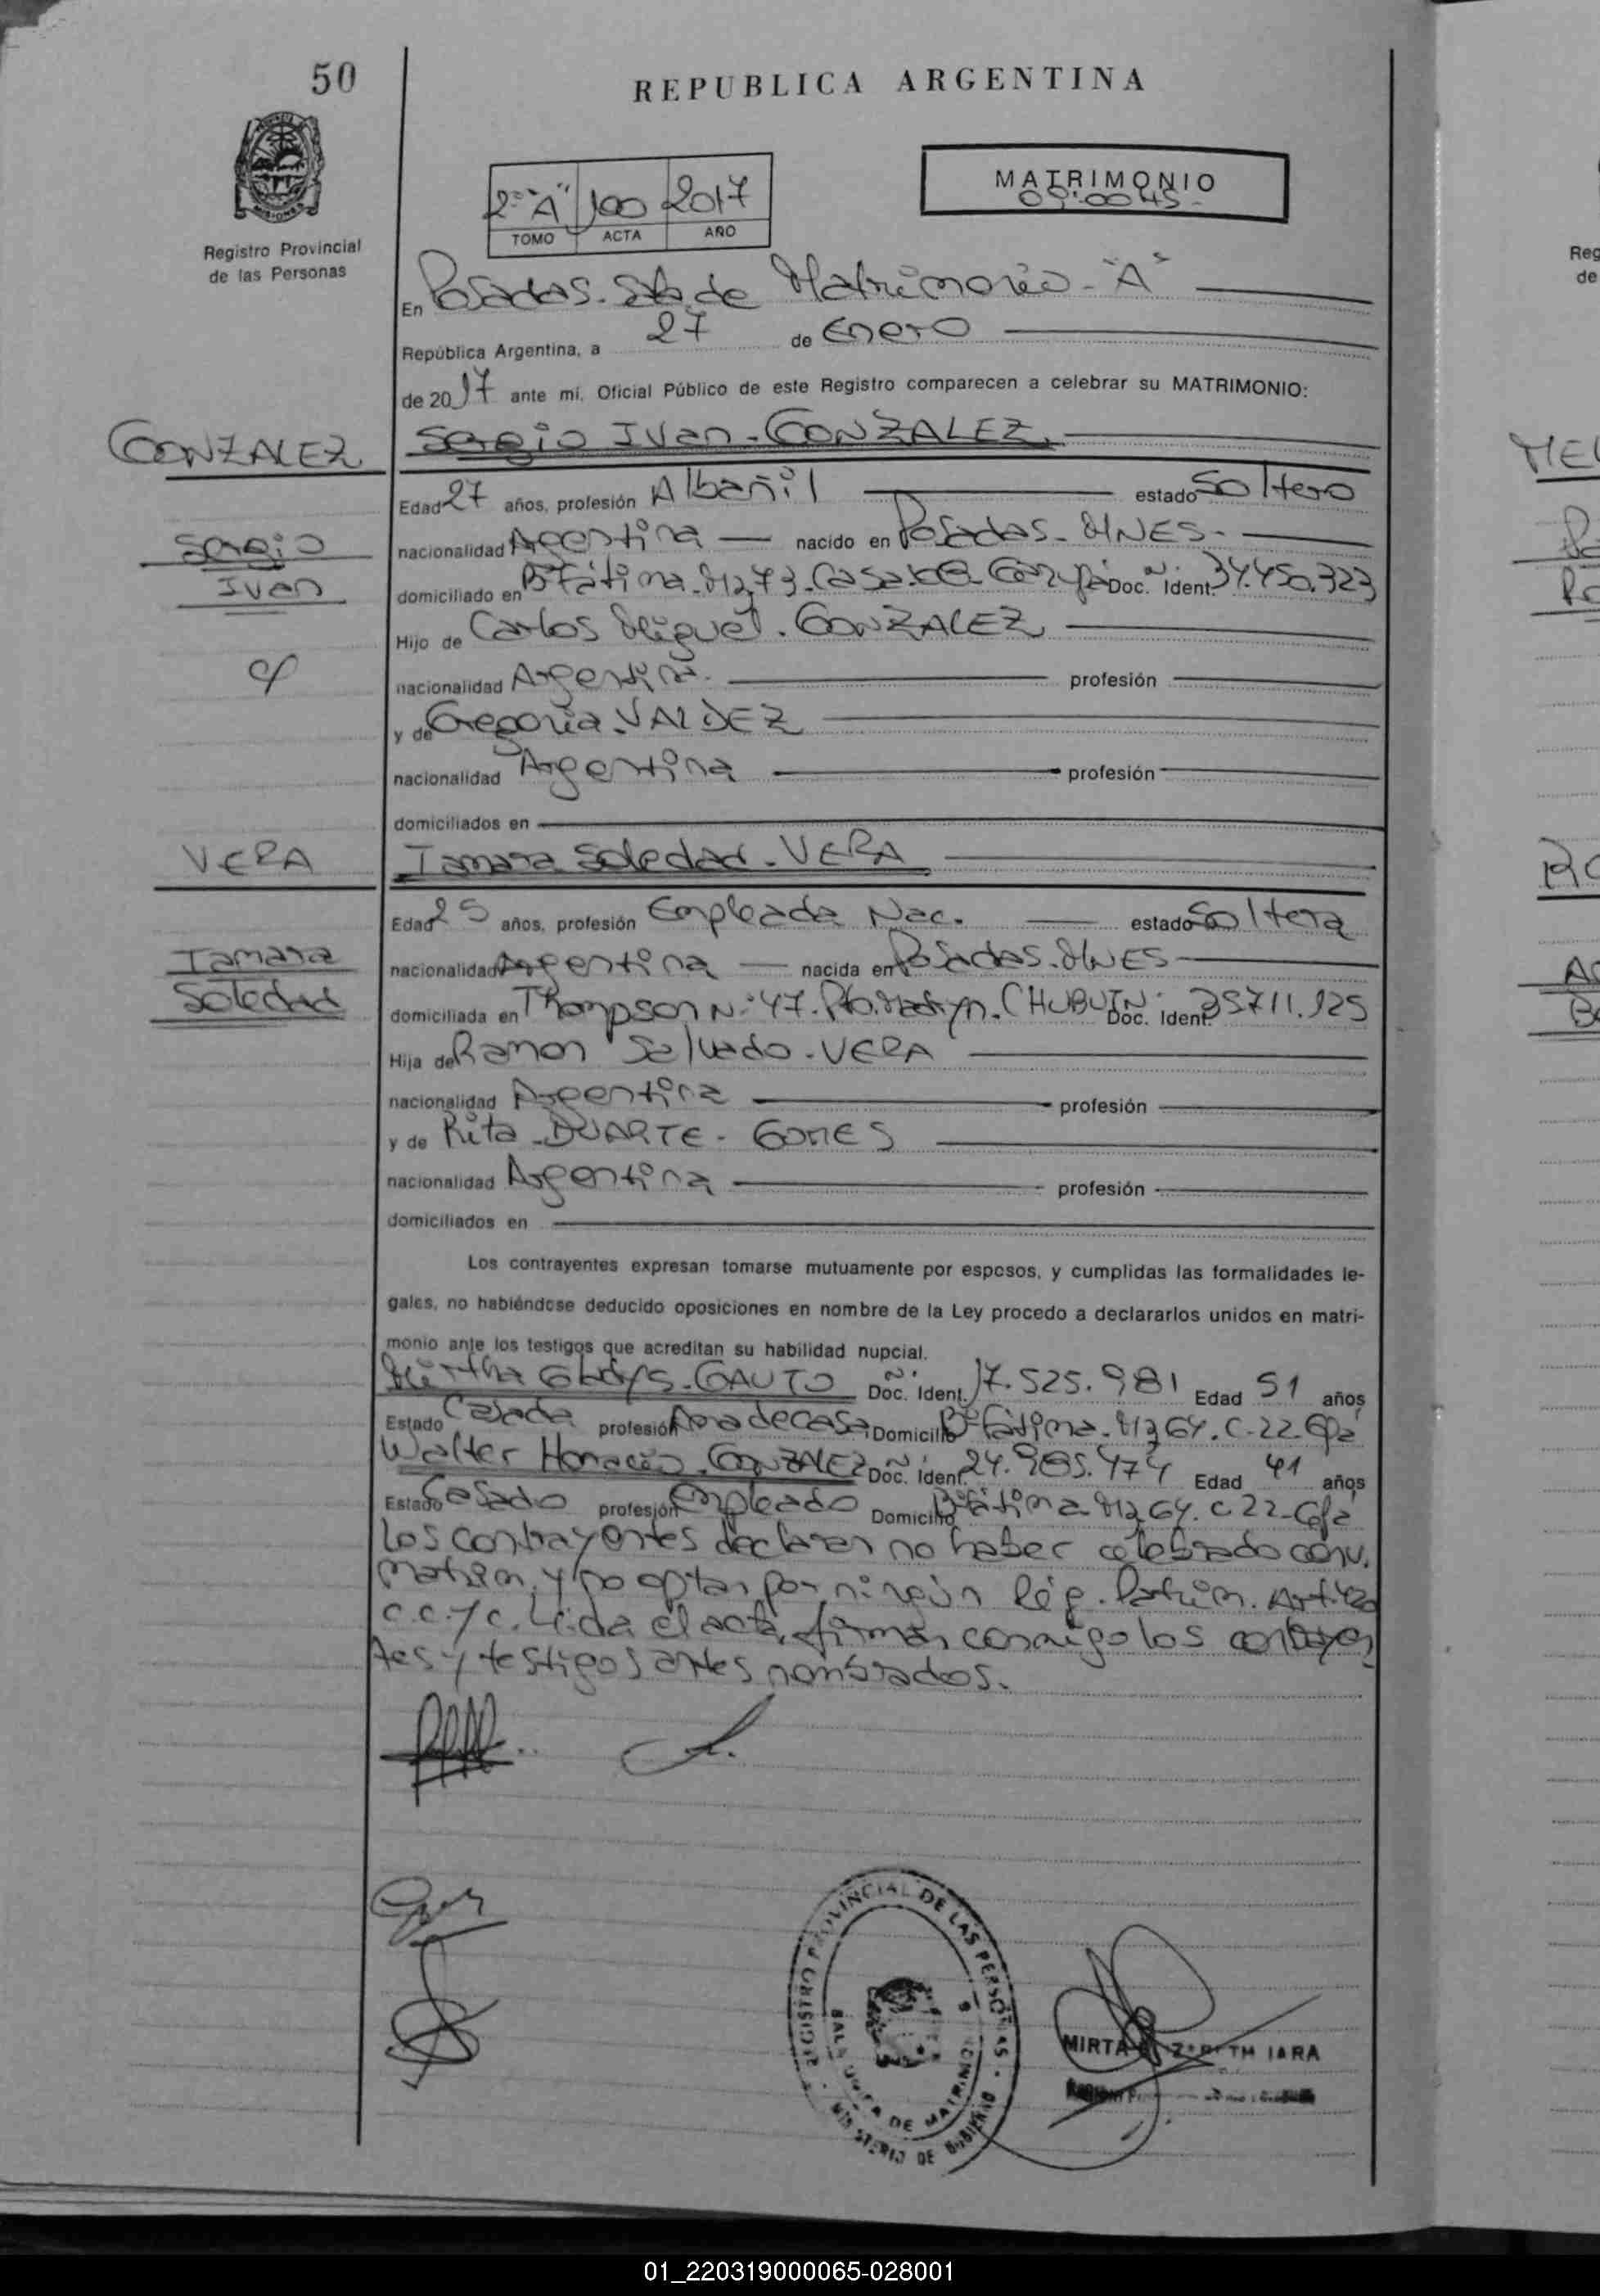 50
REPUBLICA ARGENTINA
Registro Provincial
de las Personas
2º "A" 100 2017
TOMO ACTA AÑO
MATRIMONIO
En Posadas. Sala de Matrimonio - "A"
República Argentina, a 27 de Enero
de 2017 ante mí, Oficial Público de este Registro comparecen a celebrar su MATRIMONIO:
GONZALEZ
Sergio Ivan - GONZALEZ.
Edad 27 años, profesión Albañil estado Soltero
Sergio
Ivan
nacionalidad Argentina nacido en Posadas - MNES.
domiciliado en Bº Fátima - Mz 73. Casa Garupá Doc. Ident. 34.450.323
Hijo de Carlos Miguel. GONZALEZ
nacionalidad Argentina. profesión
y de Gregoria. VALDEZ
nacionalidad Argentina profesión
domiciliados en
VERA
Tamara Soledad - VERA
Edad 25 años, profesión Empleada Nac. estado Soltera
Tamara
Soledad
nacionalidad Argentina nacida en Posadas. MNES
domiciliada en Thompson Nº 47. Pto. Madryn. CHUBUT Doc. Ident. 35711.125
Hija de Ramon Salvado. VERA
nacionalidad Argentina profesión
y de Rita - DUARTE - GOMES
nacionalidad Argentina profesión
domiciliados en
Los contrayentes expresan tomarse mutuamente por esposos, y cumplidas las formalidades le-
gales, no habiéndose deducido oposiciones en nombre de la Ley procedo a declararlos unidos en matri-
monio ante los testigos que acreditan su habilidad nupcial.
Mirtha Gladys. GAUTO Doc. Ident. 17.525.981 Edad 51 años
Estado Casada profesión Ama de casa Domicilio Bº Fátima. Mz 64. C-22. Gpá
Walter Horacio. GONZALEZ Doc. Ident. 24.985.474 Edad 41 años
Estado Casado profesión Empleado Domicilio Bº Fátima Mz 64. C 22 - Gpá
Los contrayentes declaran no haber celebrado conv.
matrim. y no optar por ningún Rég. Patrim. Art. 420
C.C. y C. Leida el acta, firman conmigo los contrayen
tes y testigos antes nombrados.
REGISTRO PROVINCIAL DE LAS PERSONAS
DE MATRIMONIO
MINISTERIO DE GOBIERNO
MIRTA JARA
01_220319000065-028001